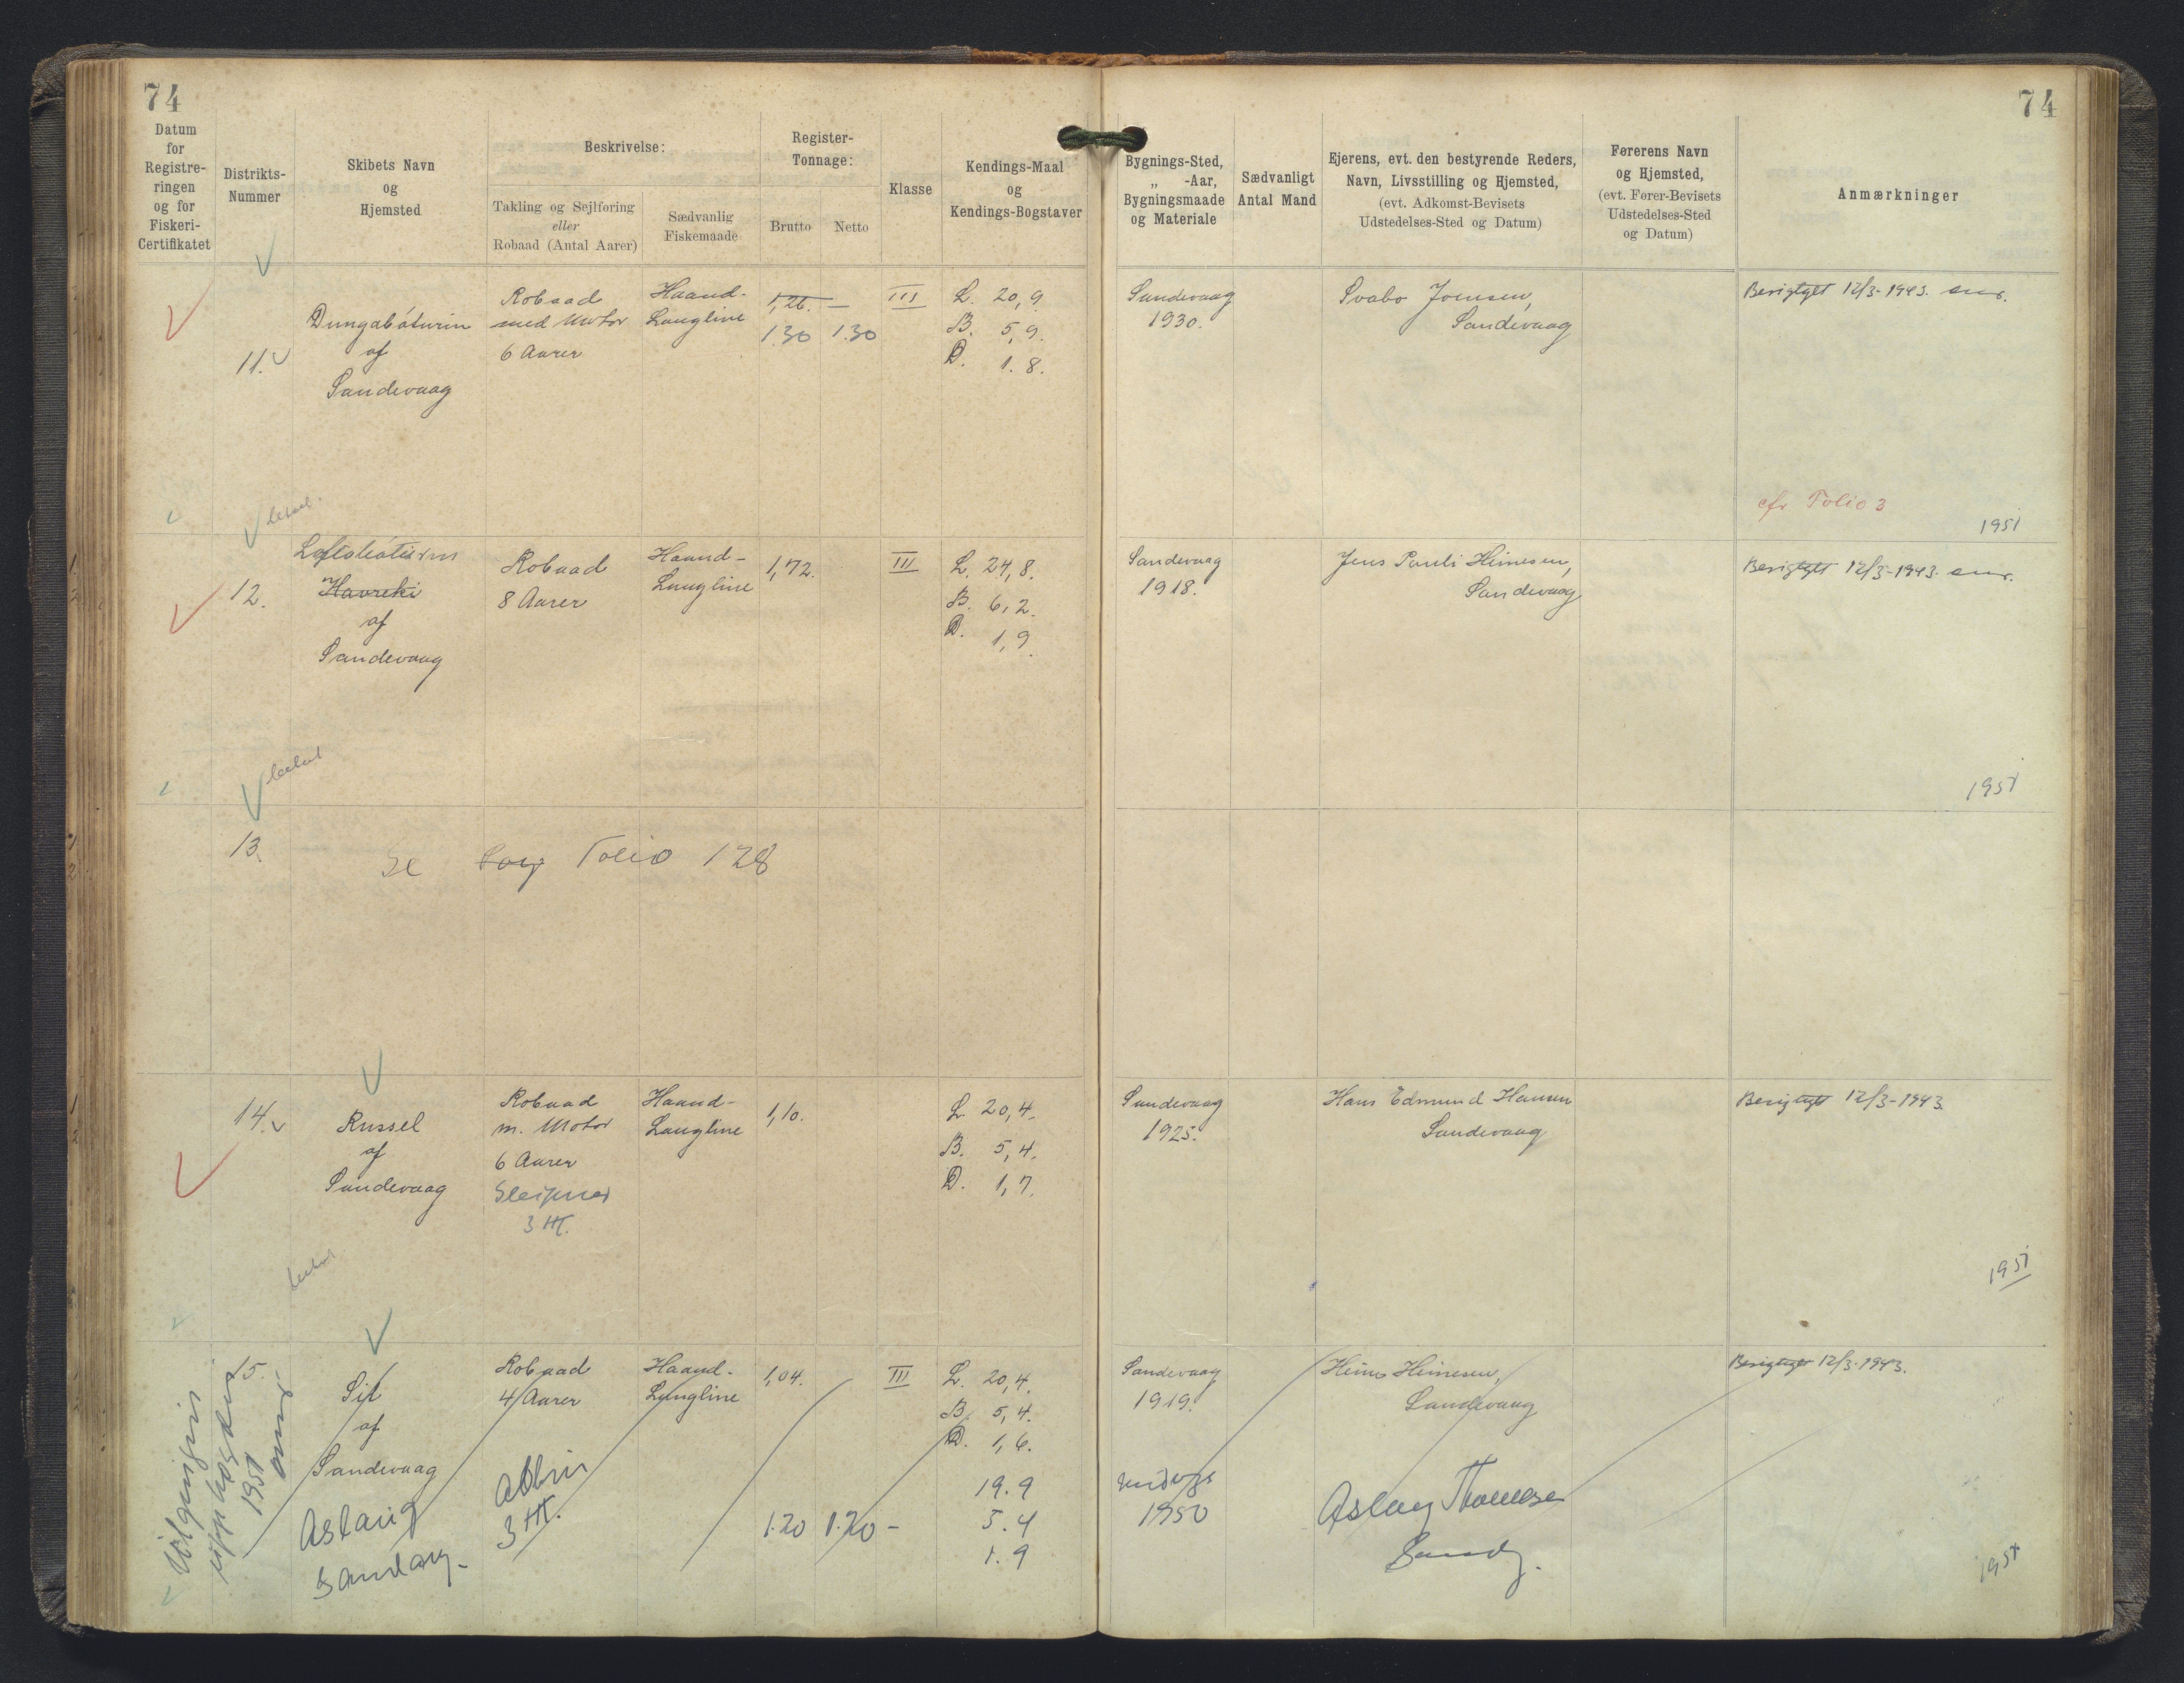 74
74
Datum
for
Registre-
ringen
og for
Fiskeri-
Certifikatet
Distrikts-
Nummer
Skibets Navn
og
Hjemsted
Beskrivelse:
Takling og Sejlføring
eller
Robaad (Antal Aarer)
Sædvanlig
Fiskemaade
Register-
Tonnage:
Brutto
Netto
Klasse
Kendings-Maal
og
Kendings-Bogstaver
Bygnings-Sted,
„ -Aar,
Bygningsmaade
og Materiale
Sædvanligt
Antal Mand
Ejerens, evt. den bestyrende Reders,
Navn, Livsstilling og Hjemsted,
(evt. Adkomst-Bevisets
Udstedelses-Sted og Datum)
Førerens Navn
og Hjemsted,
(evt. Fører-Bevisets
Udstedelses-Sted
og Datum)
Anmærkninger
11.
Dungabáturin
af
Sandevaag
Robaad
med Motor
6 Aarer
Haand-
Langline
1,26. —
1.30 1.30
III
L. 20,9
B. 5,9.
D. 1.8.
Sandevaag
1930.
Svabo Joensen,
Sandevaag
Berigtiget 12/3-1943.
cfr Folio 3
1951
12.
Havreki
af
Sandevaag
Robaad
8 Aarer
Haand-
Langline
1,72.
III
L. 24,8.
B. 6,2.
D. 1,9.
Sandevaag
1918.
Jens Pauli Heinesen,
Sandevaag
Berigtiget 12/3-1943.
1951
13.
Se Folio 128
14.
Russel
af
Sandevaag
Robaad
m. Motor
6 Aarer
Sleipner
3 HK.
Haand-
Langline
1,10.
L. 20,4.
B. 5,4.
D. 1,7.
Sandevaag
1925.
Hans Edmund Hansen
Sandevaag
Berigtiget 12/3-1943.
1951
15.
Sit
af
Sandevaag
Robaad
4 Aarer
Haand-
Langline
1,04.
III
L. 20,4.
B. 5,4.
D. 1,6.
Sandevaag
1919.
Heine Heinesen,
Sandevaag
Berigtiget 12/3-1943.
1951
Aslaug
Sandavág.
3 HK.
1.20 1.20 -
19.9
5.4
1.9
1950
Aslaug Thomsen
Sandv.
1951